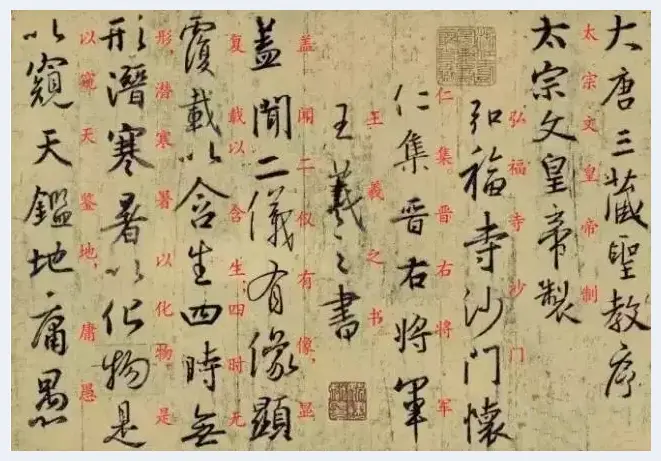 大唐三藏聖教序
太宗文皇帝制
太宗文皇帝製
弘福寺沙门
弘福寺沙門懷
仁集晋右将军
仁集晉右將軍
王羲之书
王羲之書
盖闻二仪有像，显
蓋聞二儀有像顯
复载以含生；四时无
覆載以含生四時無
形，潜寒暑以化物。是
形潛寒暑以化物是
以窥天鉴地，庸愚
以窺天鑑地庸愚